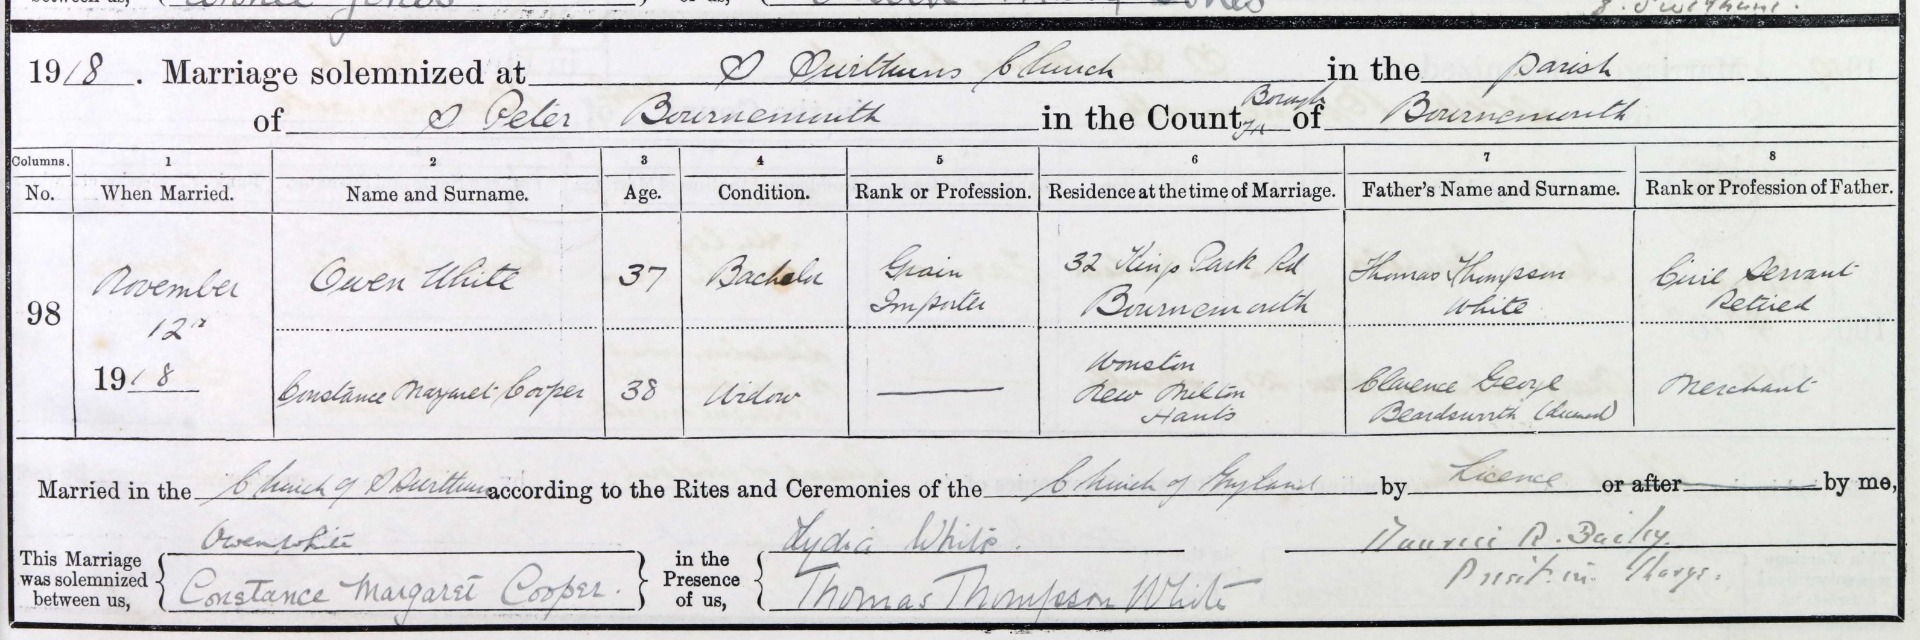 between us,
1918. Marriage solemnized at S Swithuns Church in the parish
of S Peter Bournemouth in the County Borough of Bournemouth
Columns. 1 2 3 4 5 6 7 8
No. When Married. Name and Surname. Age. Condition. Rank or Profession. Residence at the time of Marriage. Father's Name and Surname. Rank or Profession of Father.
98 November 12th 1918 Owen White 37 Bachelor Grain Importer 32 Kings Park Rd Bournemouth Thomas Thompson White Civil Servant Retired
Constance Margaret Cooper 38 Widow Wonston New Milton Hants Clarence George Beardsworth (deceased) Merchant
Married in the Church of S Swithun according to the Rites and Ceremonies of the Church of England by Licence or after by me,
This Marriage was solemnized between us, Owen White Constance Margaret Cooper. in the Presence of us, Lydia White. Thomas Thompson White Maurice R. Bailey. Priest. in. Charge.